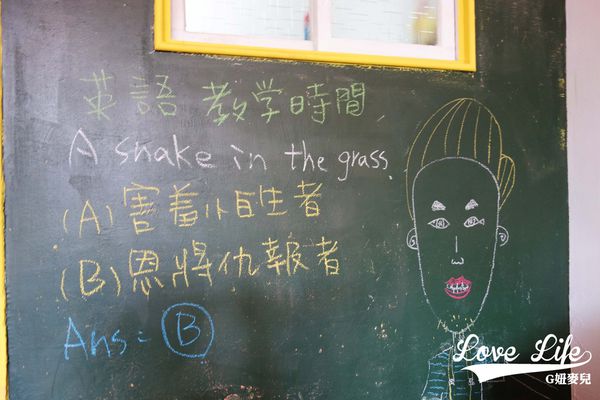 英語 教学時間
A snake in the grass.
(A) 害羞小白生者
(B) 恩將仇報者
Ans: B
Love Life
G妞麥兒